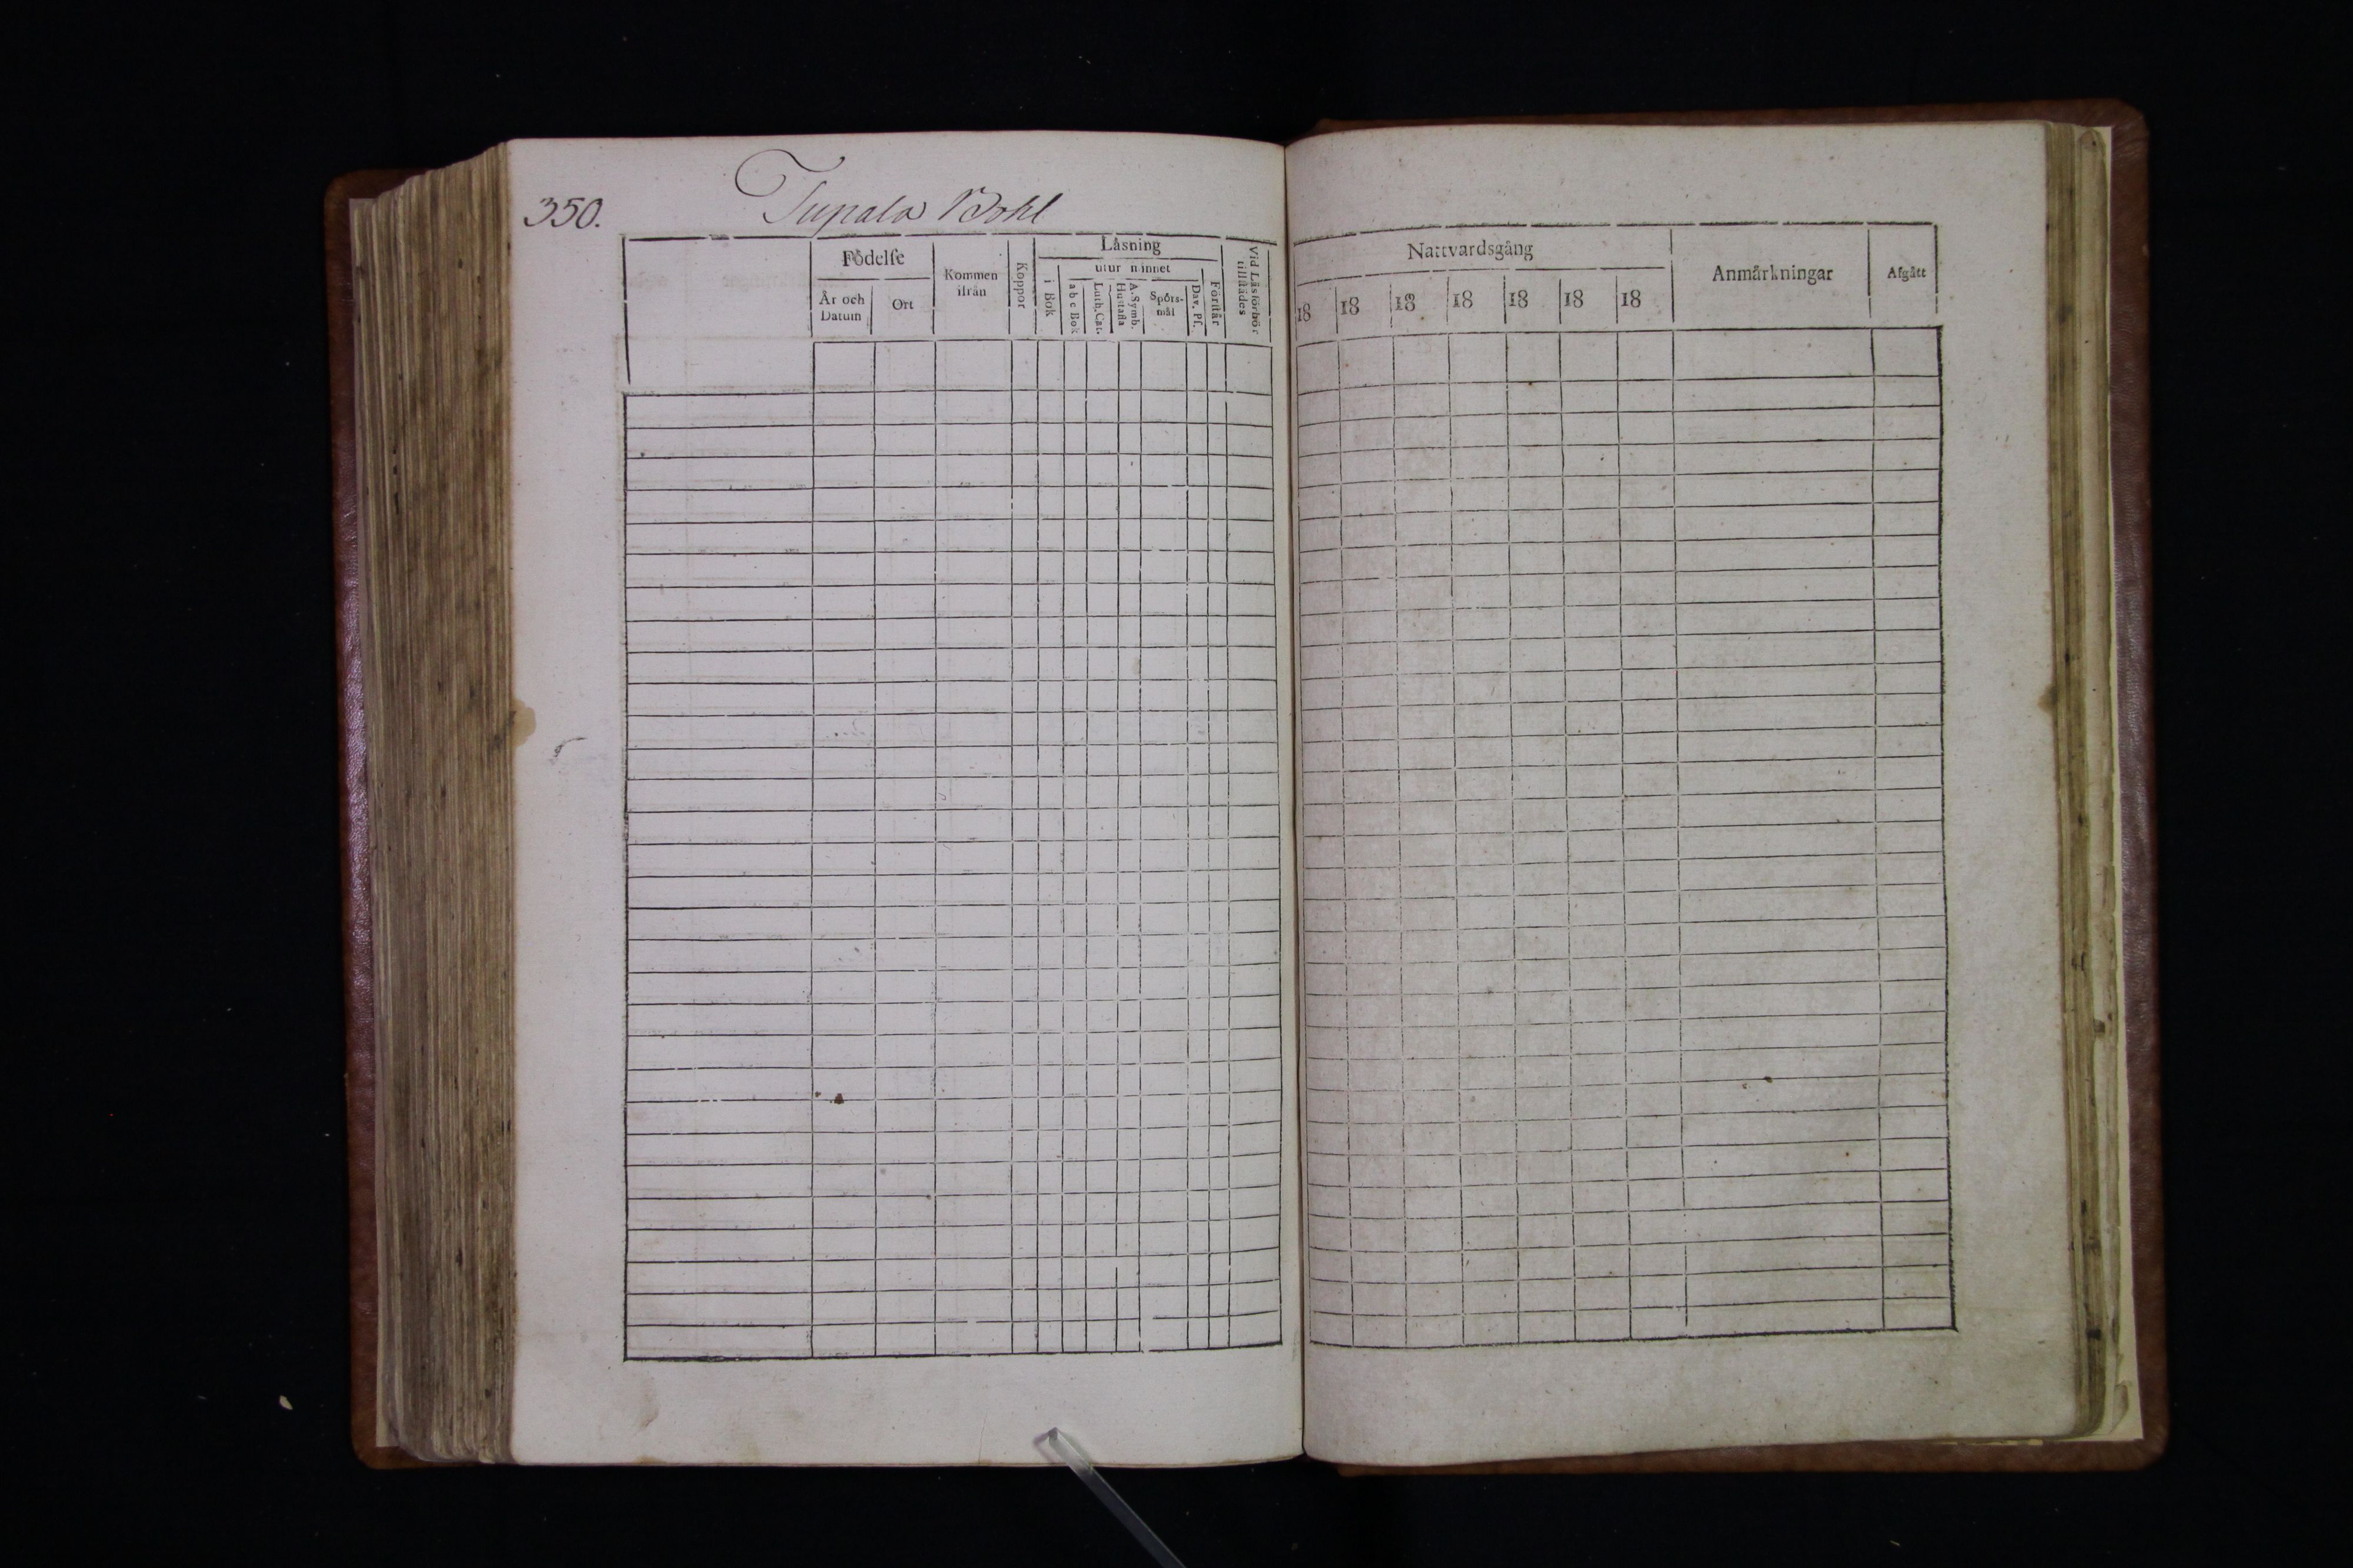 350. Tupala Bohl
Födelſe
År och Datum
Ort
Kommen ifrån
Koppor
Läsning
i Bok
utur minnet
a b c Bok
Luth. Cat.
Hustafla
A. Symb.
Spörsmål
Dav. Pſ.
Förſtår
Vid Läsförhör tillſtädes
Nattvardsgång
18 18 18 18 18 18 18
Anmärkningar
Afgått